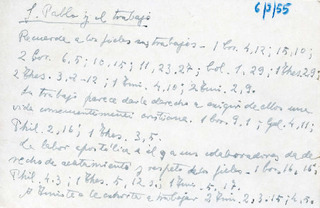 S. Pablo y el trabajo 6/3/55
Recuerda a los fieles sus trabajos. - 1 Cor. 4, 12; 15, 10;
2 Cor. 6, 5; 10, 15; 11, 23, 27; Col. 1, 29; 1 Thes. 2, 9;
2 Thes. 3, 2-12; 1 Tim. 4, 10; 2 Tim. 2, 9.
Su trabajo parece darle derecho a exigir de ellos una
vida convenientemente cristiana. 1 Cor. 9, 1; Gal. 4, 11;
Phil. 2, 16; 1 Thes. 3, 5.
La labor apostólica a él y a sus colaboradores da de-
recho de acatamiento y respeto de los fieles. - 1 Cor. 16, 16;
Phil. 4, 3; 1 Thes. 5, 12 s.; 1 Tim. 5, 17.
A Timoteo le exhorta a trabajar 2 Tim. 2, 3. 15; 4, 5.